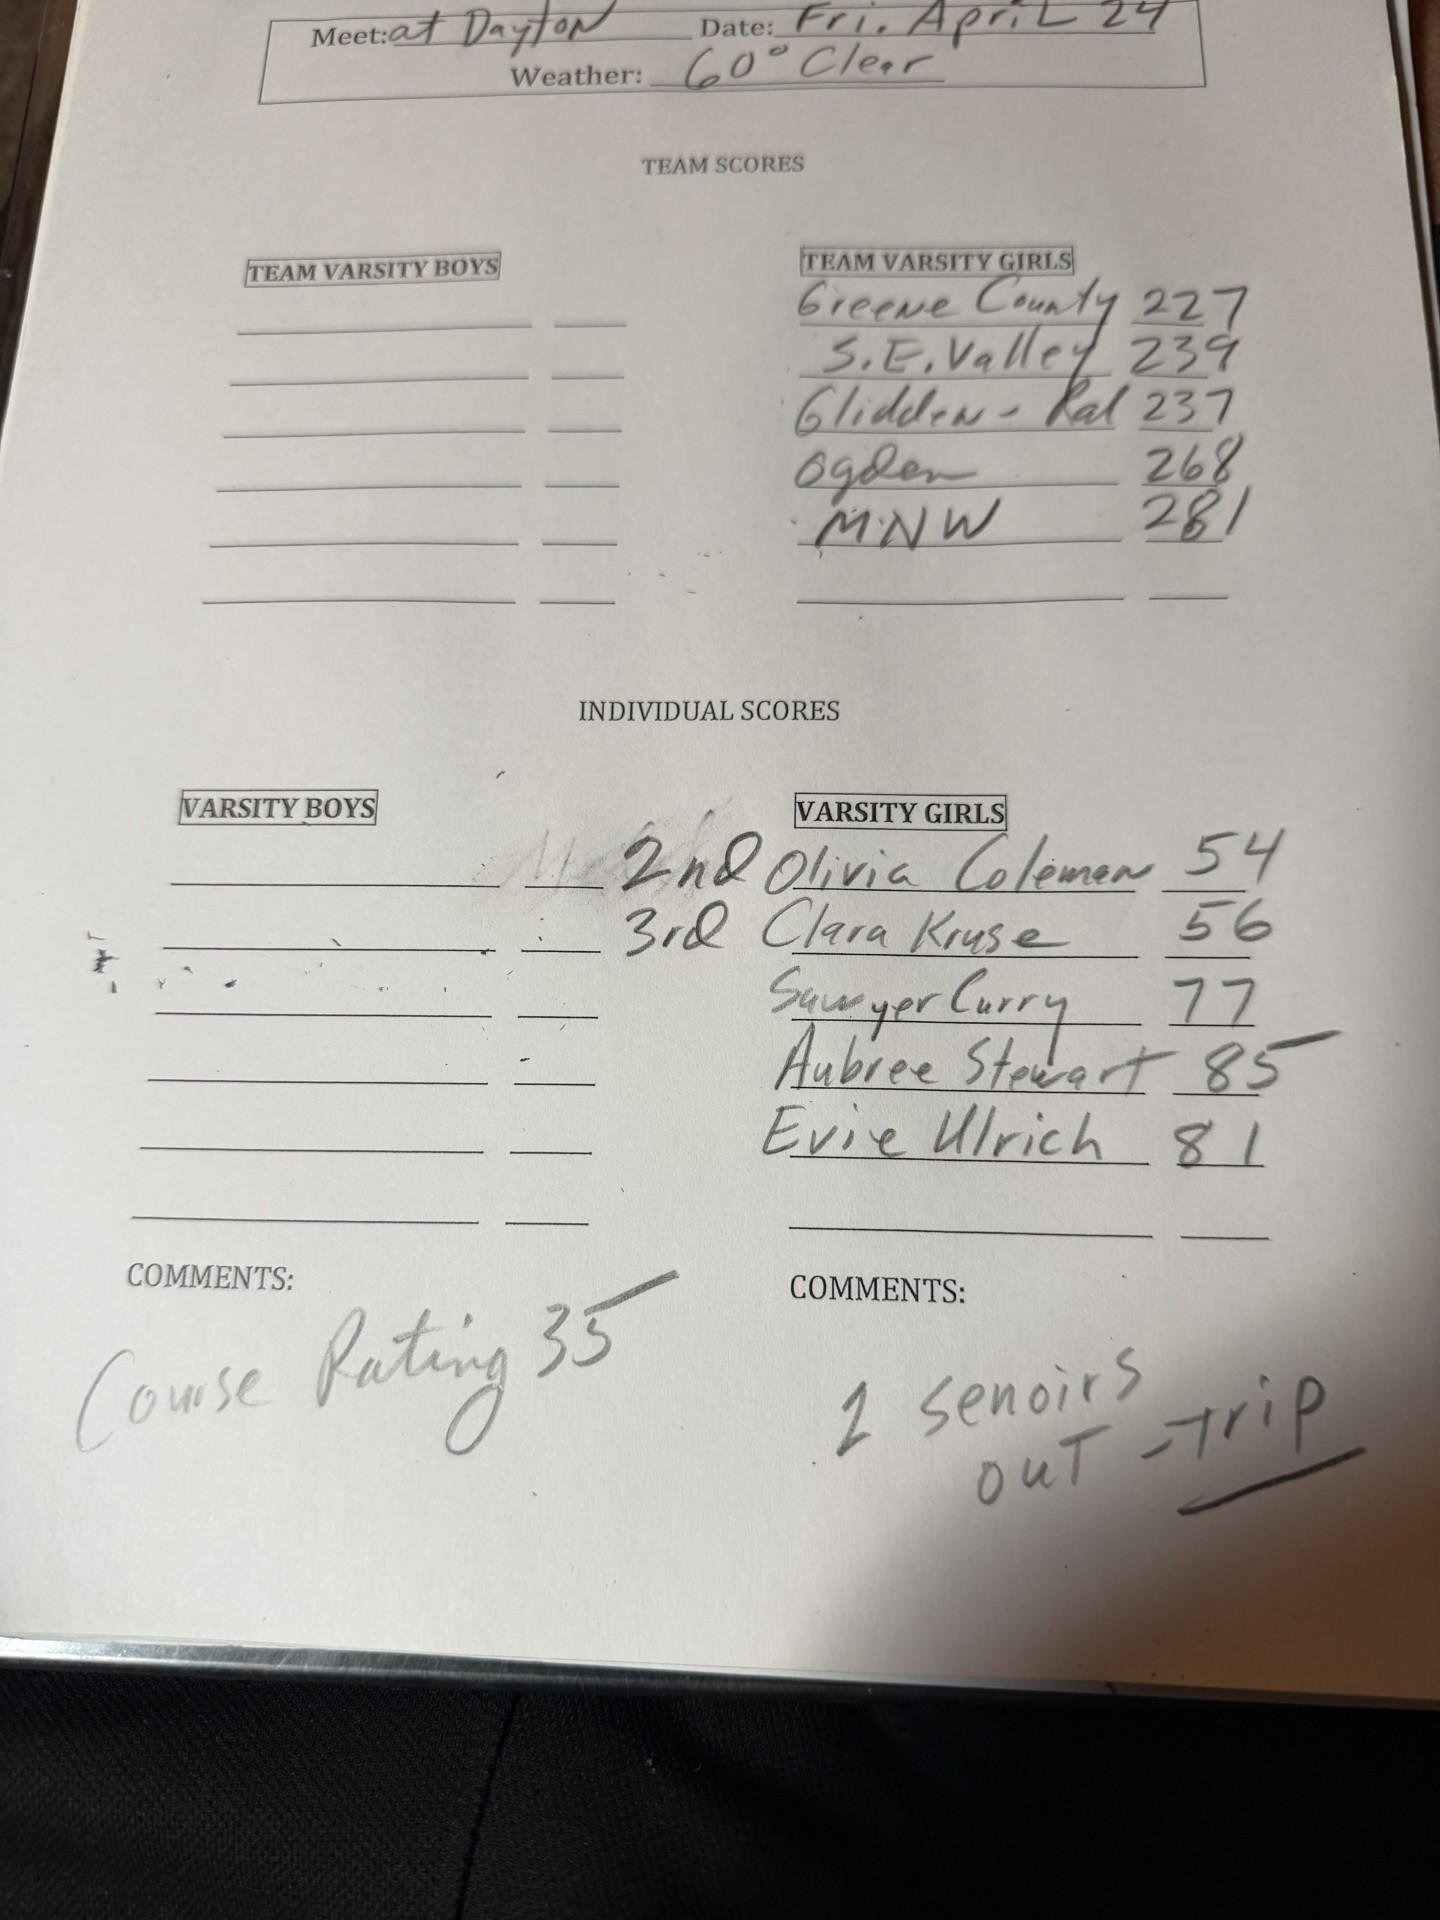 Meet: at Dayton Date: Fri. April 24
Weather: 60° Clear
TEAM SCORES
TEAM VARSITY BOYS
TEAM VARSITY GIRLS
Greene County 227
S.E. Valley 239
Glidden - Ral 237
Ogden 268
MNW 281
INDIVIDUAL SCORES
VARSITY BOYS
VARSITY GIRLS
2nd Olivia Coleman 54
3rd Clara Kruse 56
Sawyer Curry 77
Aubree Stewart 85
Evie Ulrich 81
COMMENTS:
Course Rating 35
COMMENTS:
2 senoirs
out - trip